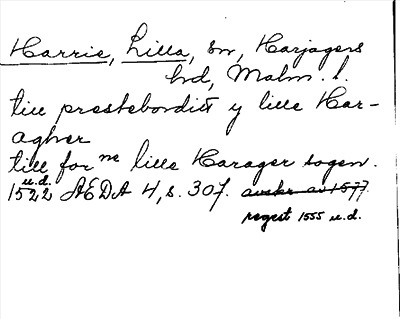 Harrie, Lilla, sn, Harjagers
hd, Malm. l.
till prestebordit y lille Har-
agher
till for ne lille Harager sogen.
u.d.
1522 ÆDA 4, s. 307. avskr av 1577.
regest 1555 u.d.